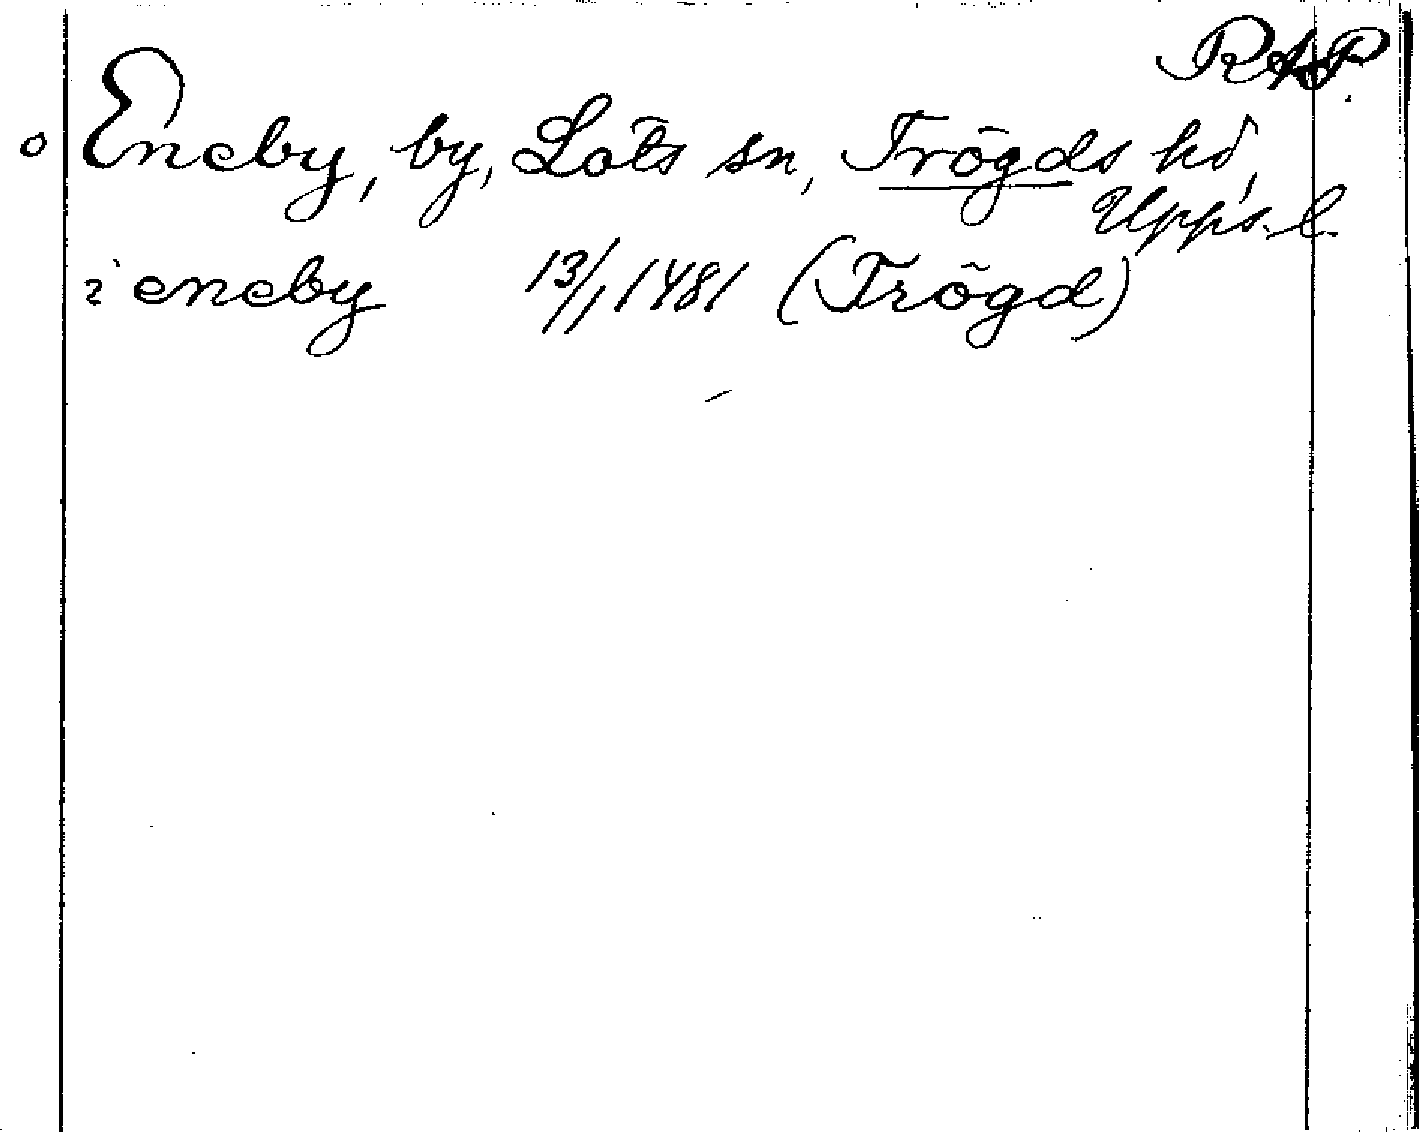 RAP.
o Eneby, by, Löts sn, Trögds hd,
Upps. l.
i eneby 13/1 1481 (Trögd)